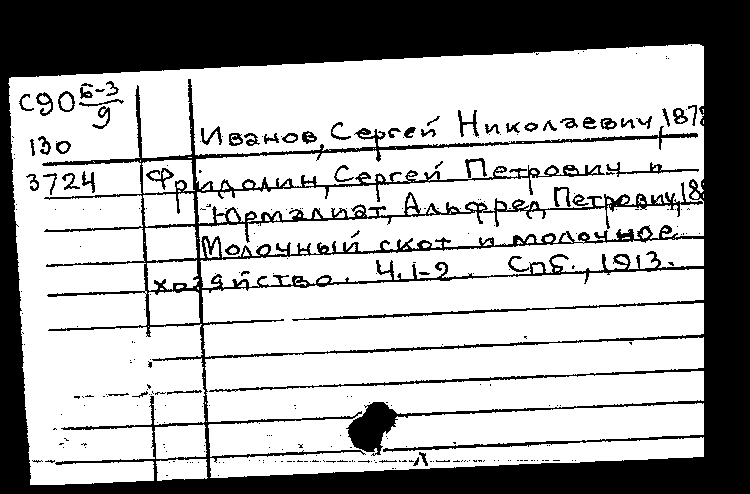 С90 Б-3/9
130 Иванов, Сергей Николаевич, 1878
3724 Фридолин, Сергей Петрович и
Юрмалиат, Альфред Петрович, 188
Молочный скот и молочное
хозяйство. Ч.1-2. Спб., 1913.